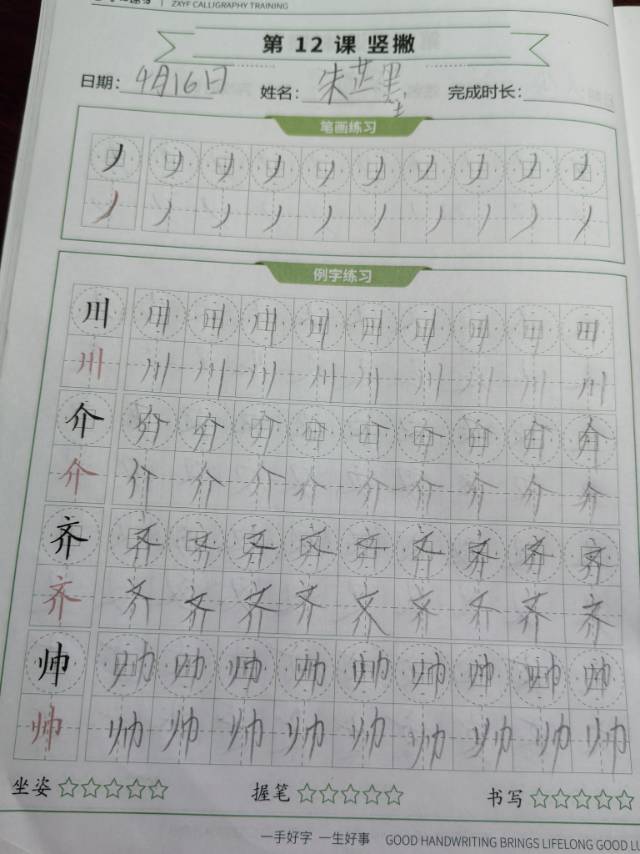 ZXYF CALLIGRAPHY TRAINING
第 12 课 竖撇
日期: 4月16日 姓名: 朱芷 完成时长:
笔画练习
例字练习
川 川 川 川 川 川 川 川 川 川
川 川 川 川 川 川 川 川 川 川
介 介 介 介 介 介 介 介 介 介
介 介 介 介 介 介 介 介 介 介
齐 齐 齐 齐 齐 齐 齐 齐 齐 齐
齐 齐 齐 齐 齐 齐 齐 齐 齐 齐
帅 帅 帅 帅 帅 帅 帅 帅 帅 帅
帅 帅 帅 帅 帅 帅 帅 帅 帅 帅
坐姿 ☆☆☆☆☆ 握笔 ☆☆☆☆☆ 书写 ☆☆☆☆☆
一手好字 一生好事 GOOD HANDWRITING BRINGS LIFELONG GOOD